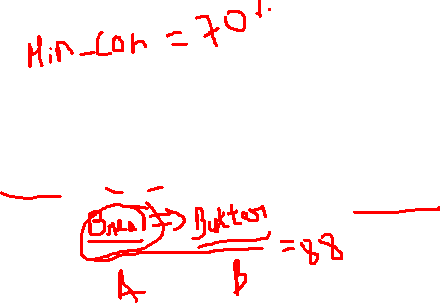 Min_Con = 70%
Bread => Butter = 88
A B